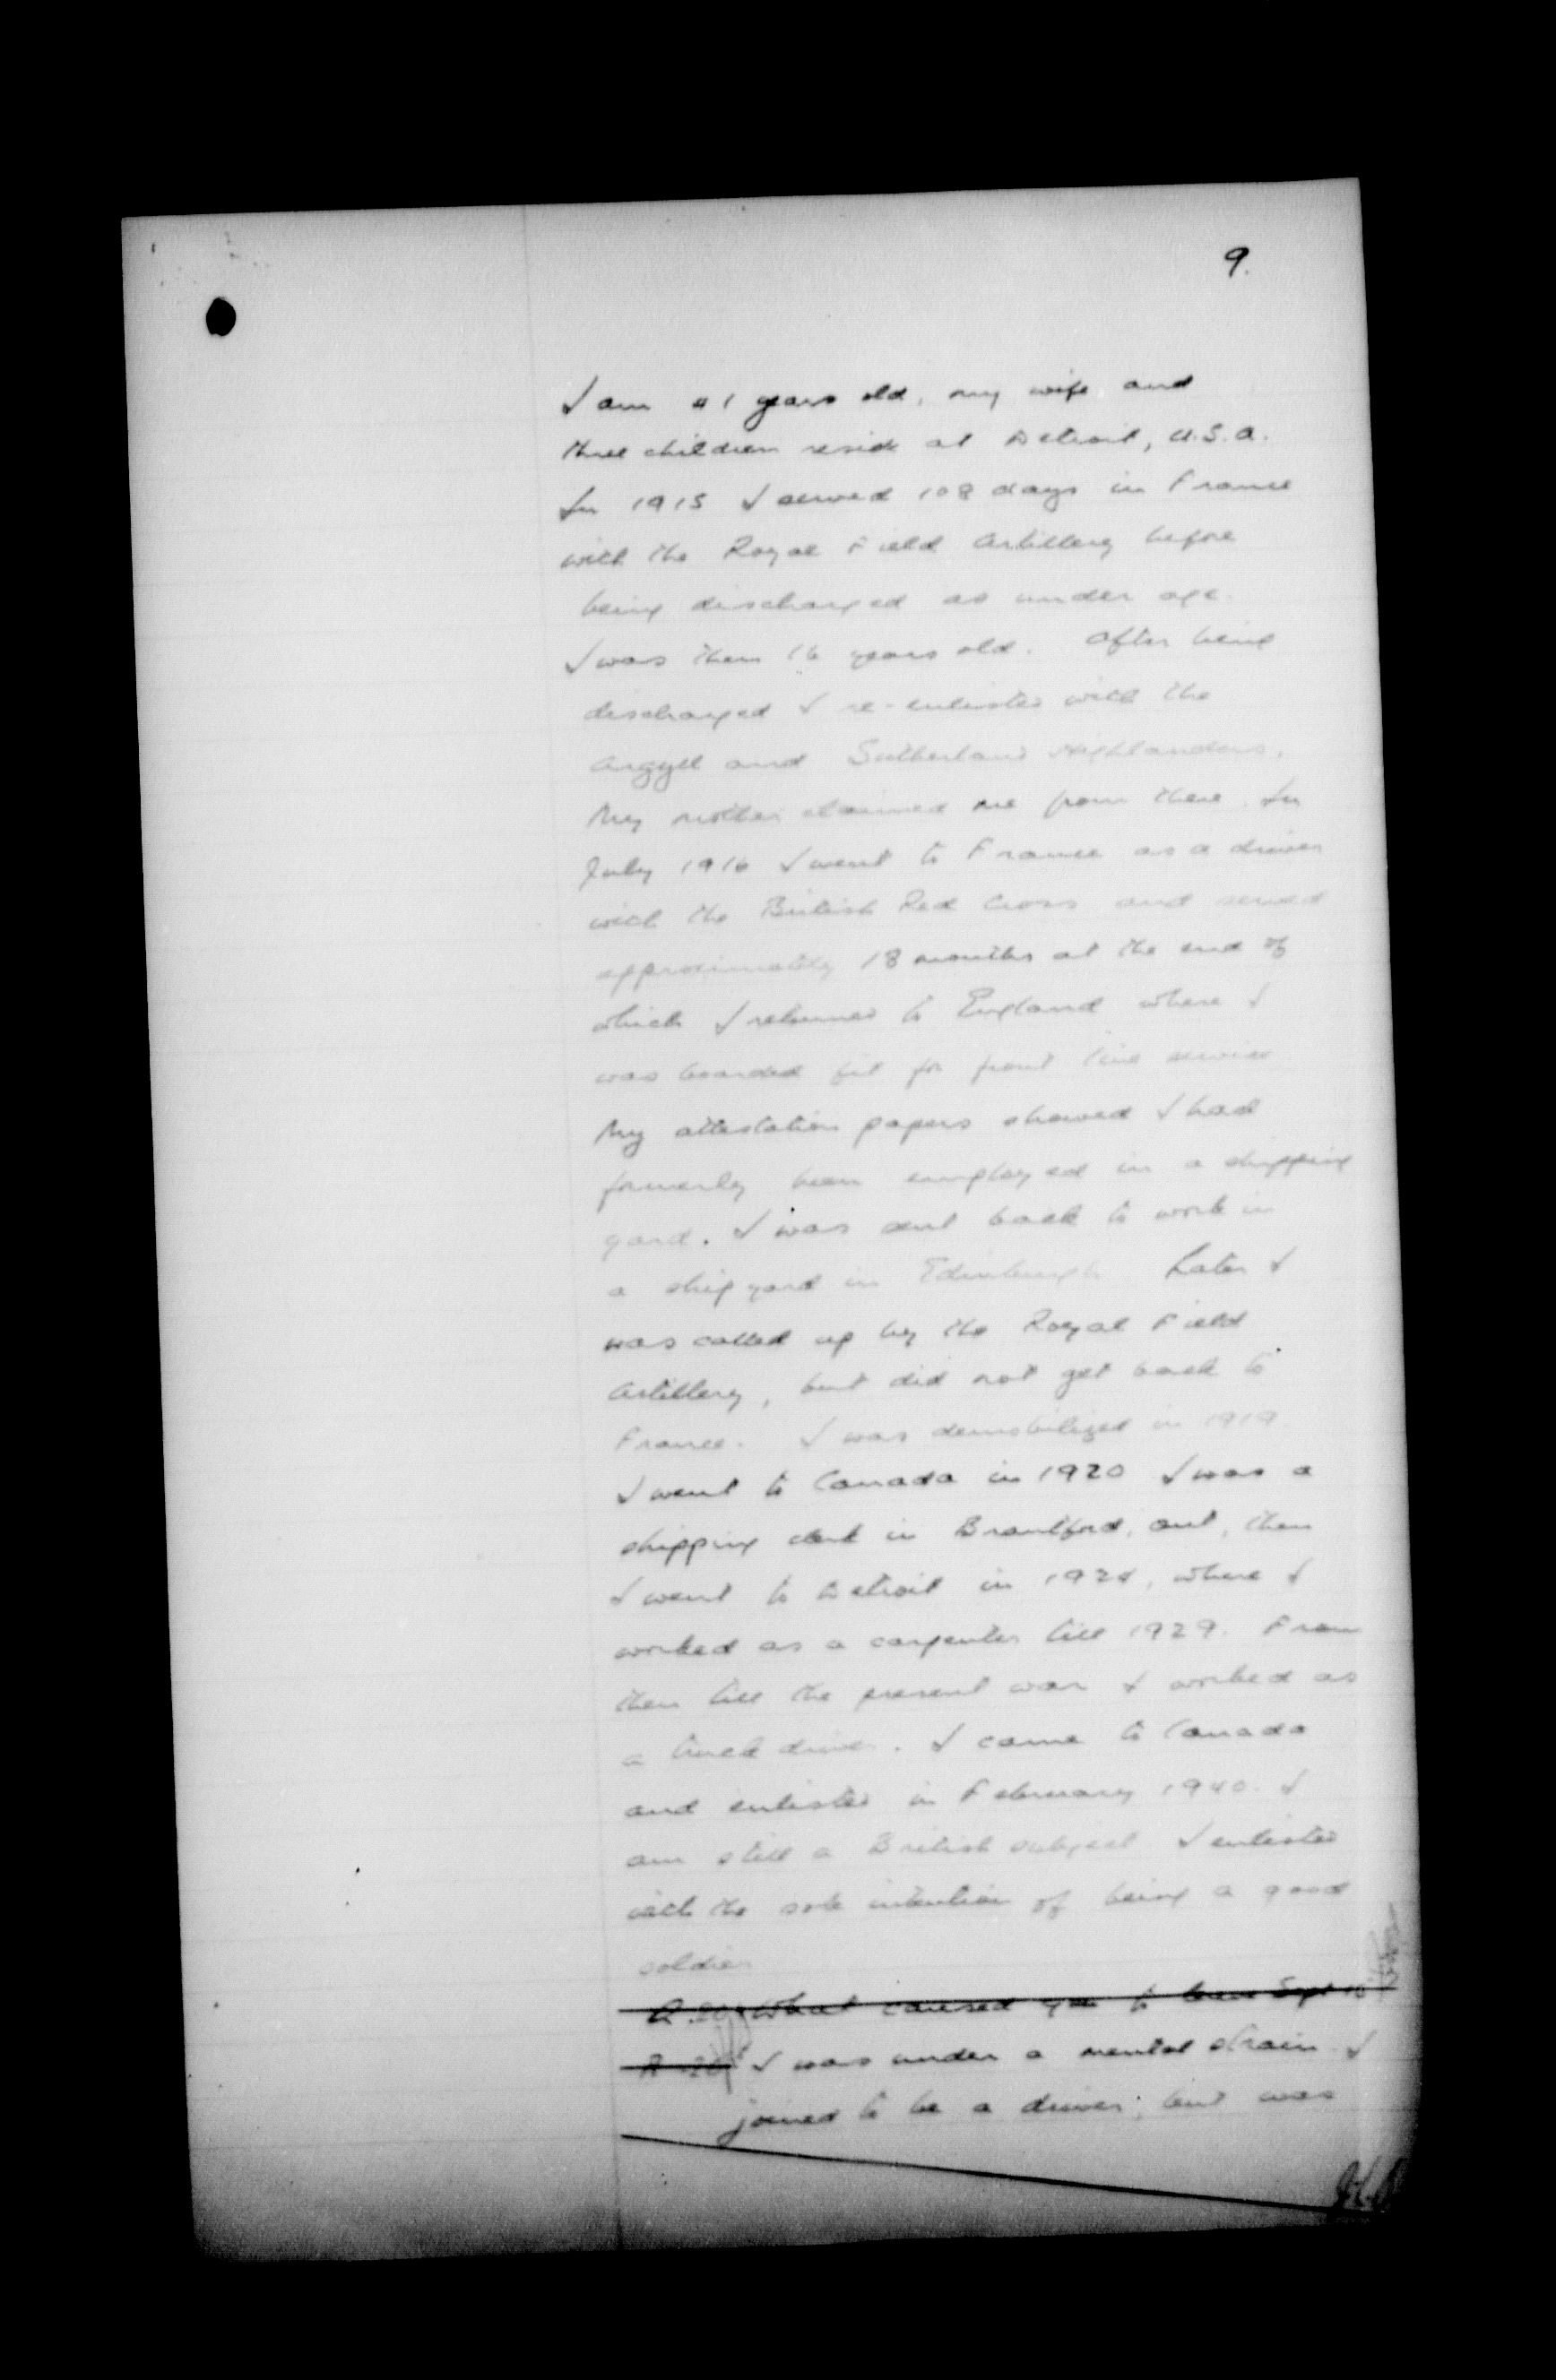 9.
I am 41 years old, my wife and
three children reside at Detroit, U.S.A.
In 1915 I served 108 days in France
with the Royal Field Artillery before
being discharged as under age.
I was then 16 years old. After being
discharged I re-enlisted with the
Argyll and Sutherland Highlanders.
My mother claimed me from there. In
July 1916 I went to France as a driver
with the British Red Cross and served
approximately 18 months at the end of
which I returned to England where I
was boarded fit for front line service
My attestation papers showed I had
formerly been employed in a shipping
yard. I was sent back to work in
a ship yard in Edinburgh Later I
was called up by the Royal Field
Artillery, but did not get back to
France. I was demobilized in 1919.
I went to Canada in 1920 I was a
shipping clerk in Brantford, Ont, then
I went to Detroit in 1924, where I
worked as a carpenter till 1929. From
then till the present war I worked as
a truck driver. I came to Canada
and enlisted in February 1940. I
am still a British subject I enlisted
with the sole intention of being a good
soldier
Q. What caused you to leave Sept 10
I was under a mental strain. I
joined to be a driver, but was